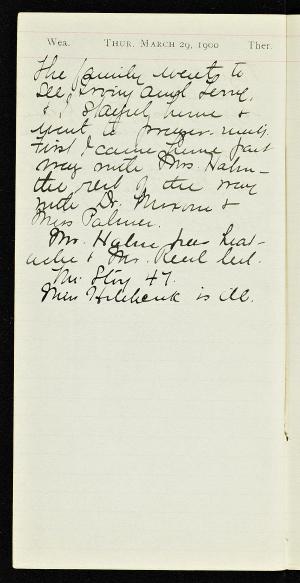 Wea. THUR. MARCH 29, 1900 Ther.
The family went to
see Irving and Terry,
& I stayed home &
went to prayer-meetg.
First I came home part
way with Mrs. Hahn -
the rest of the way
with Dr. Moxom &
Miss Palmer.
Mr. Hahn has head-
ache & Mr. Reed led.
Mr. Story 47.
Miss Hitchcock is ill.